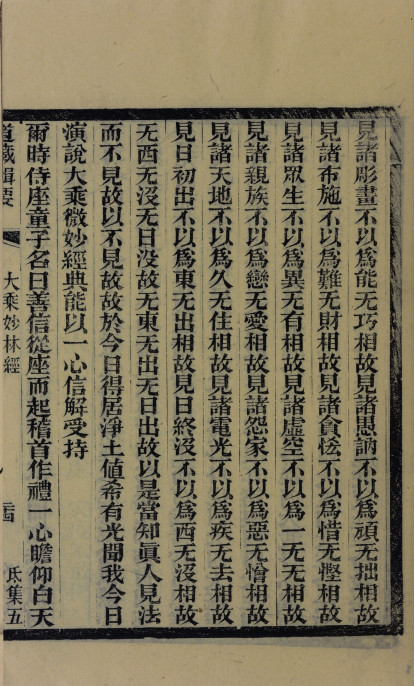 見諸彫畫不以爲能无巧相故見諸愚訥不以爲頑无拙相故
見諸布施不以爲難无財相故見諸貪恡不以爲惜无慳相故
見諸眾生不以爲異无有相故見諸虛空不以爲一无无相故
見諸親族不以爲戀无愛相故見諸怨家不以爲惡无憎相故
見諸天地不以爲久无住相故見諸電光不以爲疾无去相故
見日初出不以爲東无出相故見日終沒不以爲西无沒相故
无西无沒无日沒故无東无出无日出故以是當知眞人見法
而不見故以不見故故於今日得居淨土值希有光聞我今日
演說大乘微妙經典能以一心信解受持
爾時侍座童子名曰善信從座而起稽首作禮一心瞻仰白天
道藏輯要
大乘妙林經
氐集五